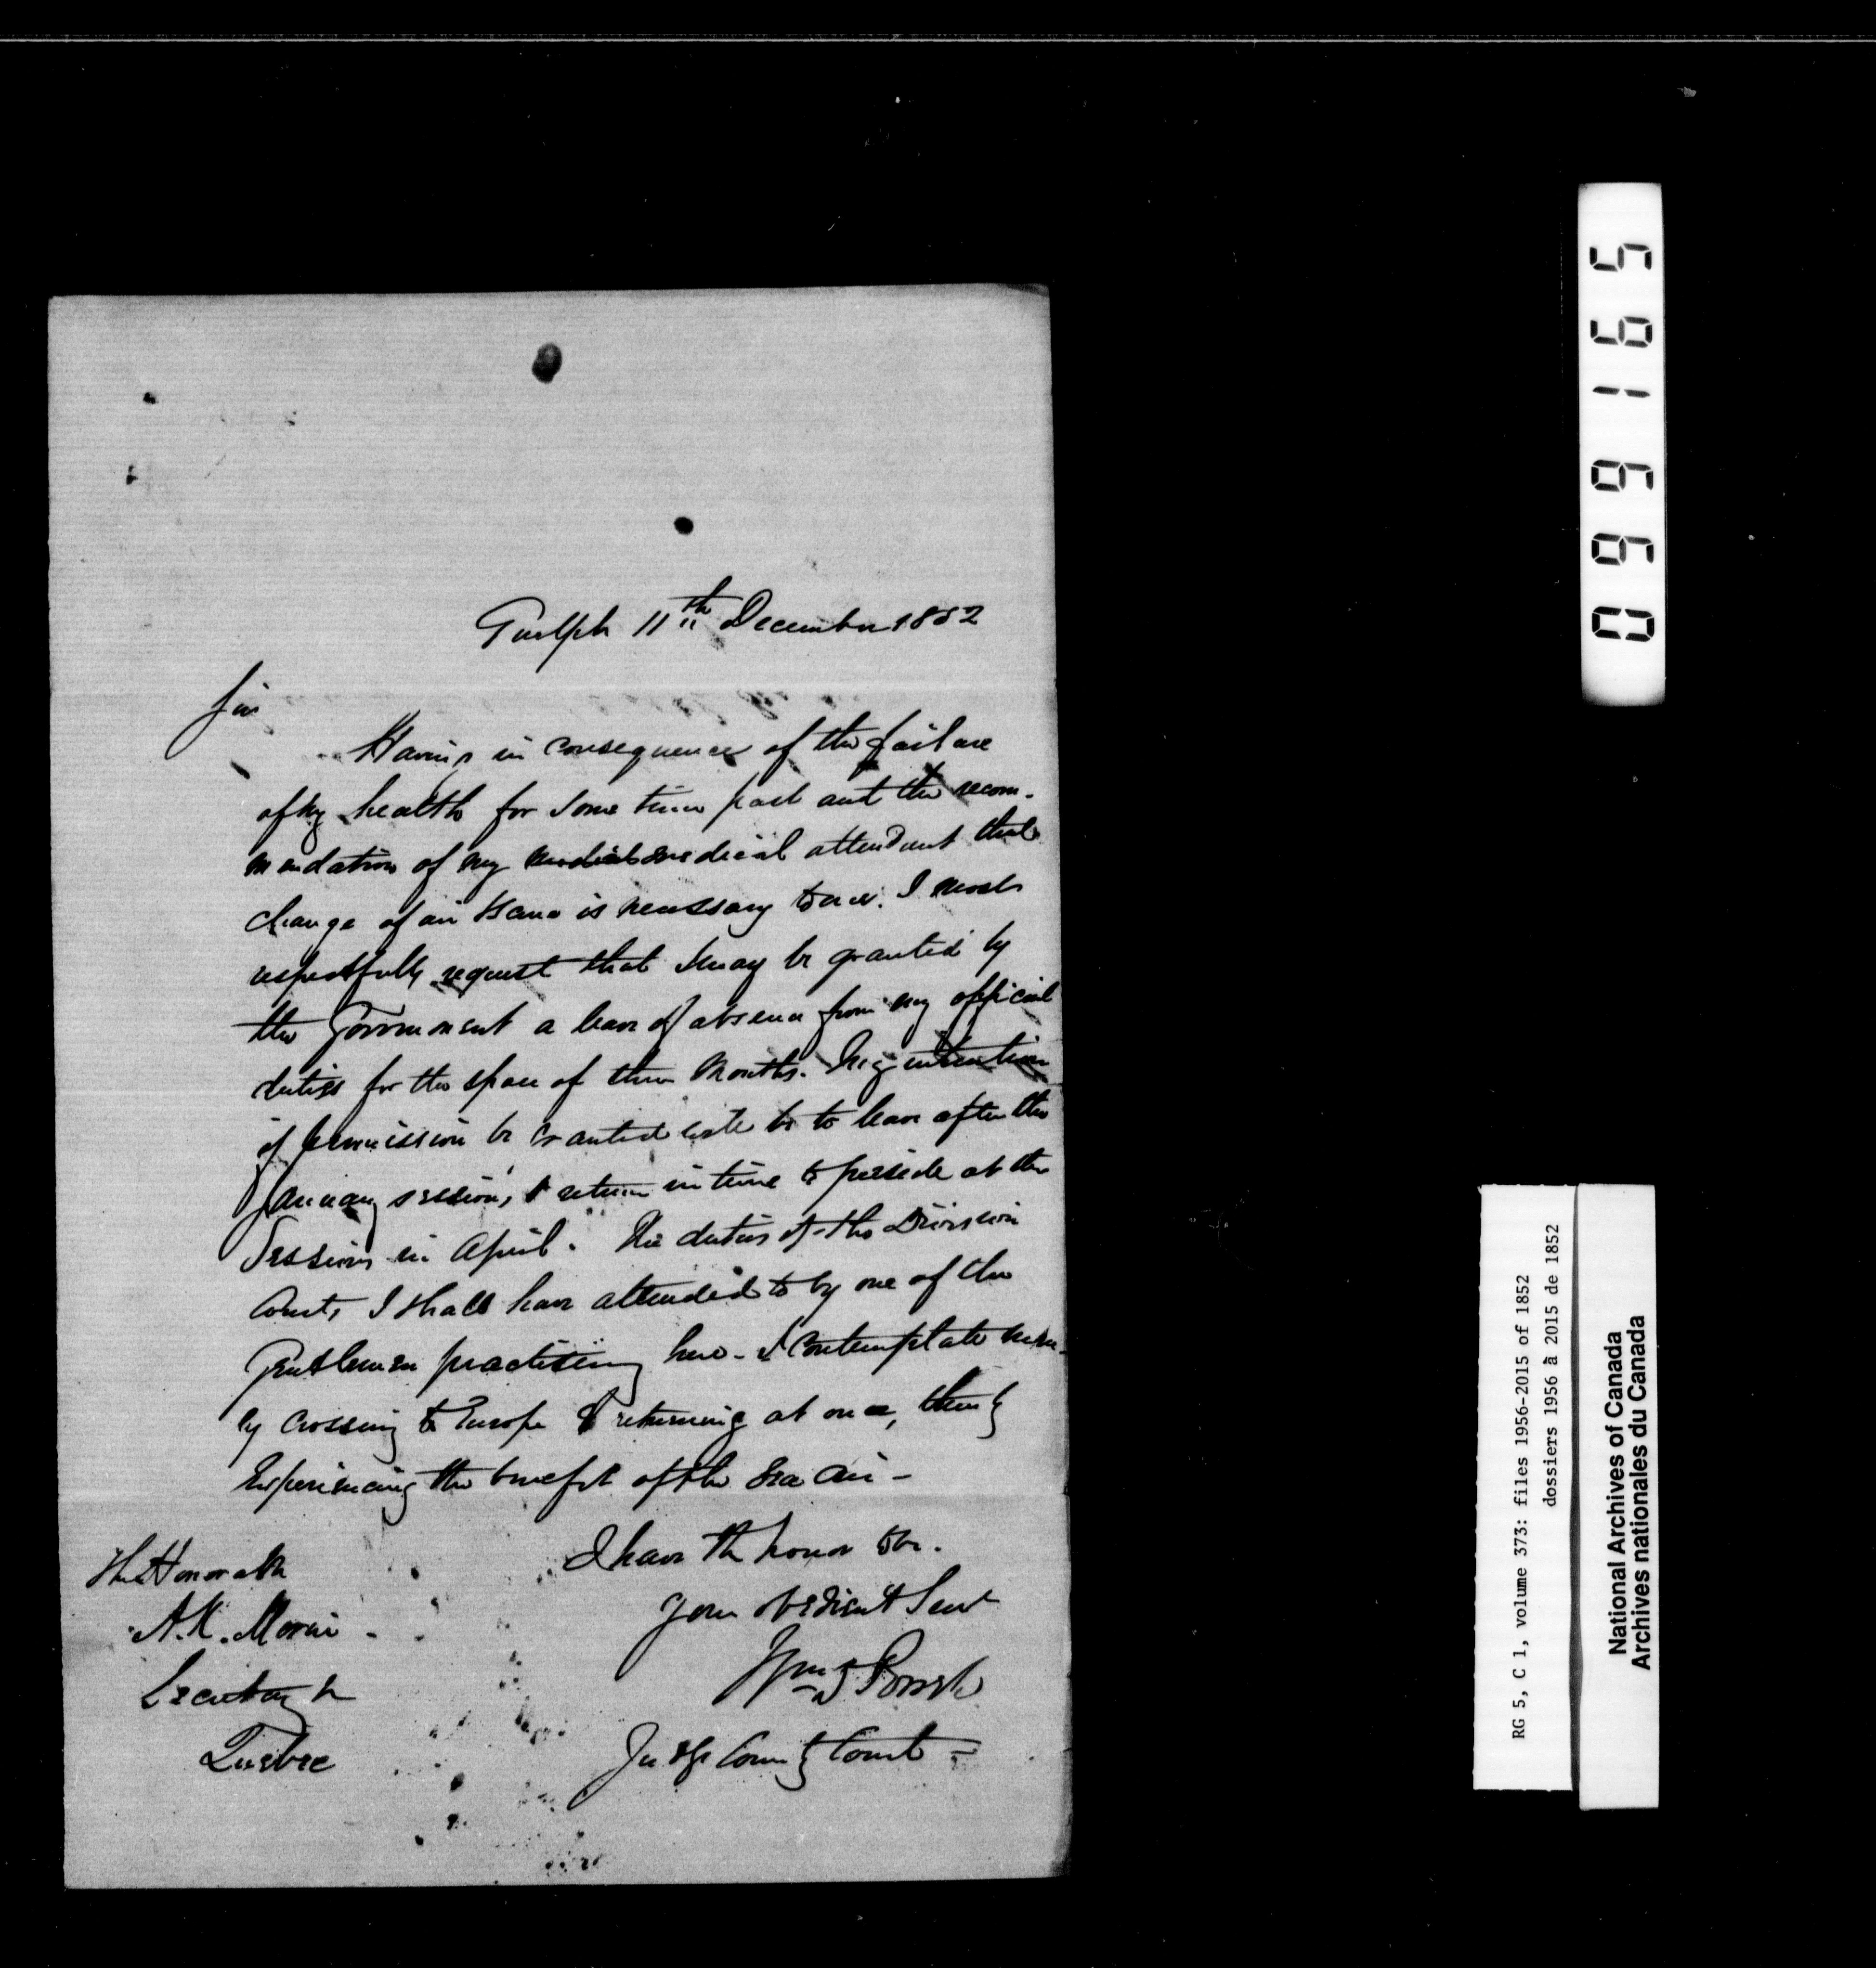 Guelph 11th December 1852
Sir
Having in consequence of the failure
of my health for some time past and the recom-
mendation of my medical attendant that
change of air & scene is necessary to me. I most
respectfully request that I may be granted by
the Government a leave of absence from my official
duties for the space of three months. My intention
if permission be granted will be to leave after the
January session, & return in time to preside at the
Sessions in April. The duties of the Division
Courts I shall have attended to by one of the
Gentlemen practising here - I contemplate mere-
ly crossing to Europe & returning at once, thereby
experiencing the benefit of the Sea Air -
I have the honor to be.
Your obedient Servt
Wm
Judge County Court
The Honorable
A.N. Morin
Secretary
Quebec
099165
RG 5, C 1, volume 373: files 1956-2015 of 1852
dossiers 1956 à 2015 de 1852
National Archives of Canada
Archives nationales du Canada